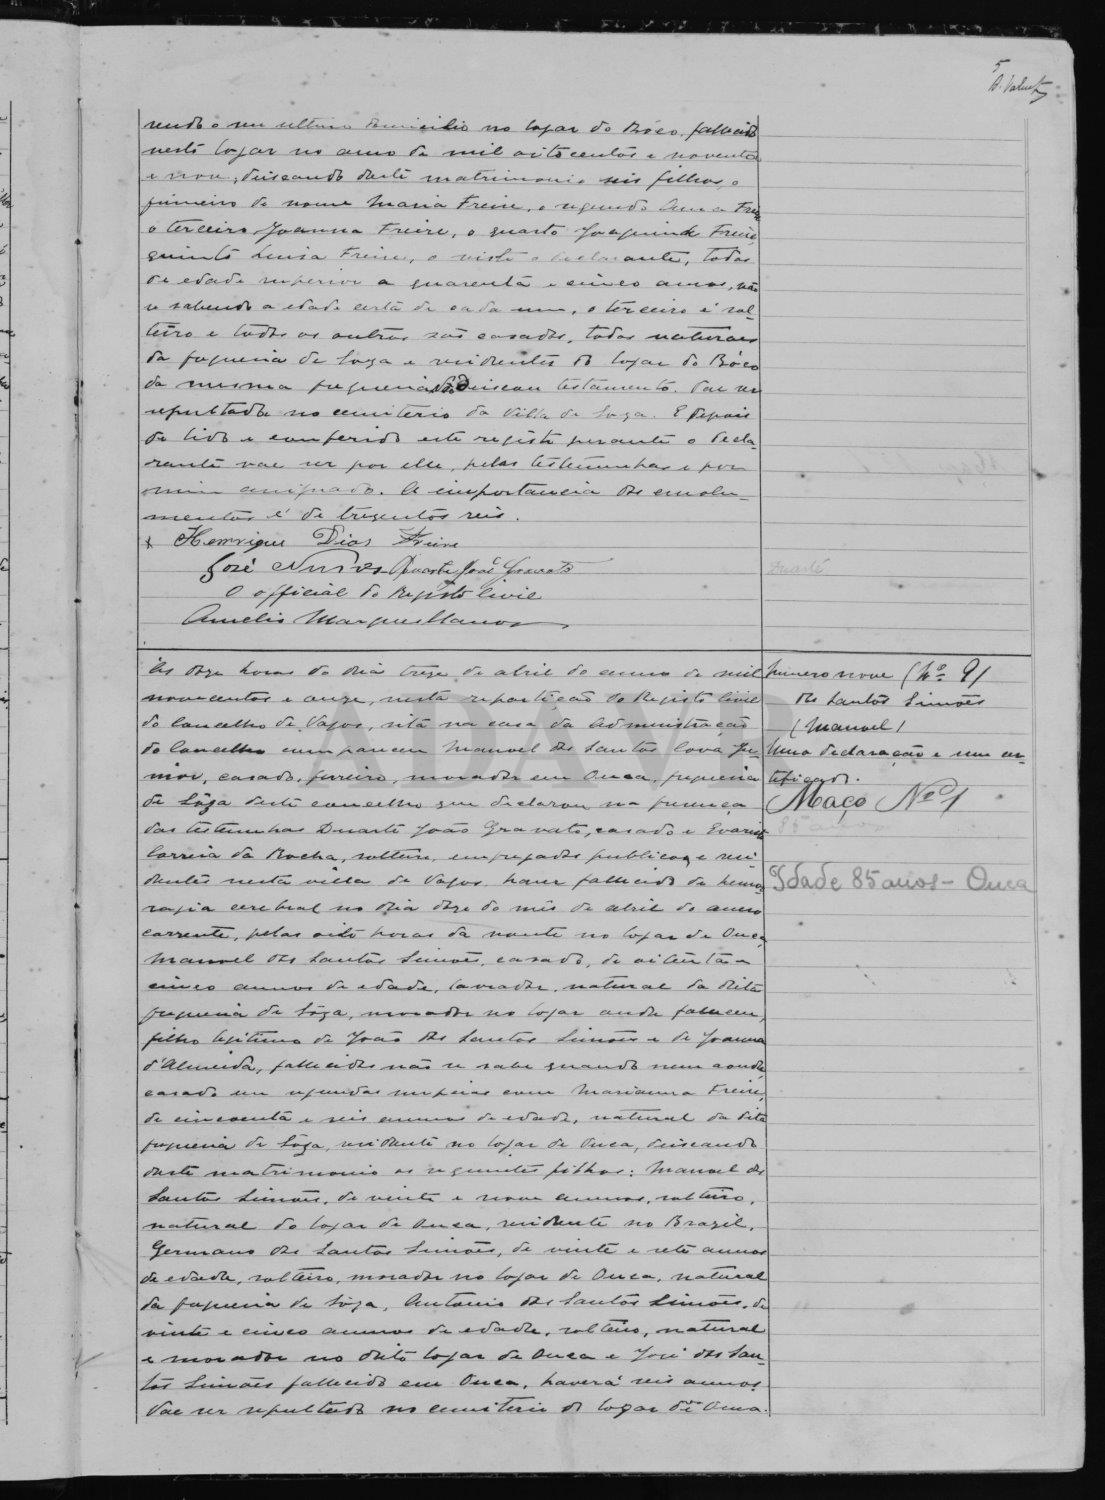 5
A. Valente
sendo o seu ultimo domicilio no logar do Bóco, fallecido
neste logar no anno de mil oitocentos e noventa
e nove, deixando deste matrimonio seis filhos, o
primeiro de nome Maria Freire, o segundo Anna Freire
o terceiro Joanna Freire, o quarto Joaquina Freire,
quinto Luisa Freire, o sexto o declarante, todos
de edade superior a quarenta e cinco annos, não
se sabendo a edade certa de cada um, o terceiro é sol-
teiro e todos os outros são casados, todos naturaes
da freguesia de Soza e residentes no logar do Bóco
da mesma freguesia, não deixou testamento. Vae ser
sepultada no cemiterio da Villa de Soza. E depois
de lido e conferido este registo perante o decla-
rante vae ser por elle, pelas testemunhas e por
mim assignado. A importancia dos emolu-
mentos é de trezentos reis.
x Henrique Dias Freire
José Nunes Duarte João Gravato
O official do Registo Civil
Amelio Marques Manos
Duarte
Ás doze horas do dia treze de abril do anno de mil
novecentos e onze, nesta repartição do Registo Civil
do Concelho de Vagos, sita na casa da Administração
do Concelho compareceu Manoel dos Santos Cova Ju-
nior, casado, ferreiro, morador em Ouca, freguesia
de Sôza deste concelho que declarou na presença
das testemunhas Duarte João Gravato, casado e Evaristo
Correia da Rocha, solteiro, empregados publicos, e resi-
dentes nesta villa de Vagos, haver fallecido de hemor-
ragia cerebral no dia doze do mês de abril do anno
corrente, pelas oito horas da noute no logar de Ouca,
Manoel dos Santos Simões, casado, de oitenta e
cinco annos de edade, lavrador, natural da dita
freguesia de Sôza, morador no logar onde falleceu,
filho legitimo de João dos Santos Simões e de Joanna
d'Almeida, fallecidos não se sabe quando nem aonde,
casado em segundas nupcias com Marianna Freire,
de cincoenta e seis annos de edade, natural da dita
freguesia de Sôza, residente no logar de Ouca, deixando
deste matrimonio os seguintes filhos: Manoel dos
Santos Simões, de vinte e nove annos, solteiro,
natural do logar de Ouca, residente no Brazil,
Germano dos Santos Simões, de vinte e sete annos
de edade, solteiro, morador no logar de Ouca, natural
da freguesia de Sôza, Antonio dos Santos Simões, de
vinte e cinco annos de edade, solteiro, natural
e morador no dito logar de Ouca e José dos San-
tos Simões fallecido em Ouca, haverá seis annos.
Vae ser sepultado no cemiterio do logar de Ouca.
Numero nove (Nº 9)
dos Santos Simões
(Manoel)
Uma declaração e um cer-
tificado.
Maço Nº 1
85 anos
Idade 85 anos - Ouca
ADAVR